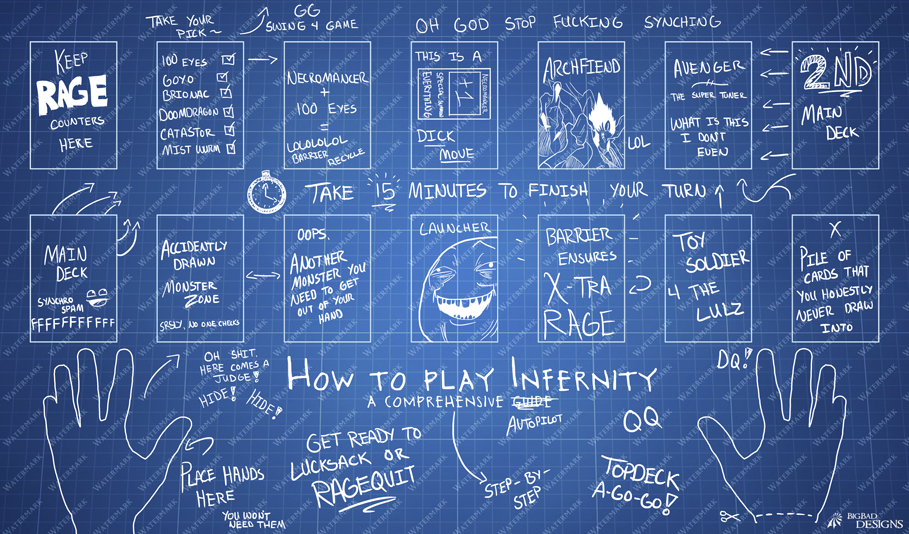 TAKE YOUR
PICK~
GG
SWING 4 GAME
OH GOD STOP FUCKING SYNCHING
KEEP
RAGE
COUNTERS
HERE
100 EYES
GOYO
BRIONAC
DOOMDRAGON
CATASTOR
MIST WURM
NECROMANCER
+
100 EYES
=
LOLOLOLOL
BARRIER
RECYCLE
THIS IS A
SPECIAL SUMMON
EVERYTHING
+1
NECROMANCER
DICK
MOVE
ARCHFIEND
LOL
AVENGER
THE SUPER TUNER
WHAT IS THIS
I DON'T
EVEN
2ND
MAIN
DECK
TAKE 15 MINUTES TO FINISH YOUR TURN
MAIN
DECK
SYNCHRO
SPAM
FFFFFFFFFFF
ACCIDENTLY
DRAWN
MONSTER
ZONE
SRSLY, NO ONE CHECKS
OOPS.
ANOTHER
MONSTER YOU
NEED TO GET
OUT OF YOUR
HAND
LAUNCHER
BARRIER
ENSURES
X-TRA
RAGE
TOY
SOLDIER
4 THE
LULZ
X
PILE OF
CARDS THAT
YOU HONESTLY
NEVER DRAW
INTO
OH SHIT.
HERE COMES A
JUDGE!
HIDE! HIDE!
HOW TO PLAY INFERNITY
A COMPREHENSIVE GUIDE
AUTOPILOT
DQ!
QQ
GET READY TO
LUCKSACK OR
RAGEQUIT
STEP-BY-
STEP
TOPDECK
A-GO-GO!
PLACE HANDS
HERE
YOU WON'T
NEED THEM
BIGBAD
DESIGNS
WATERMARK